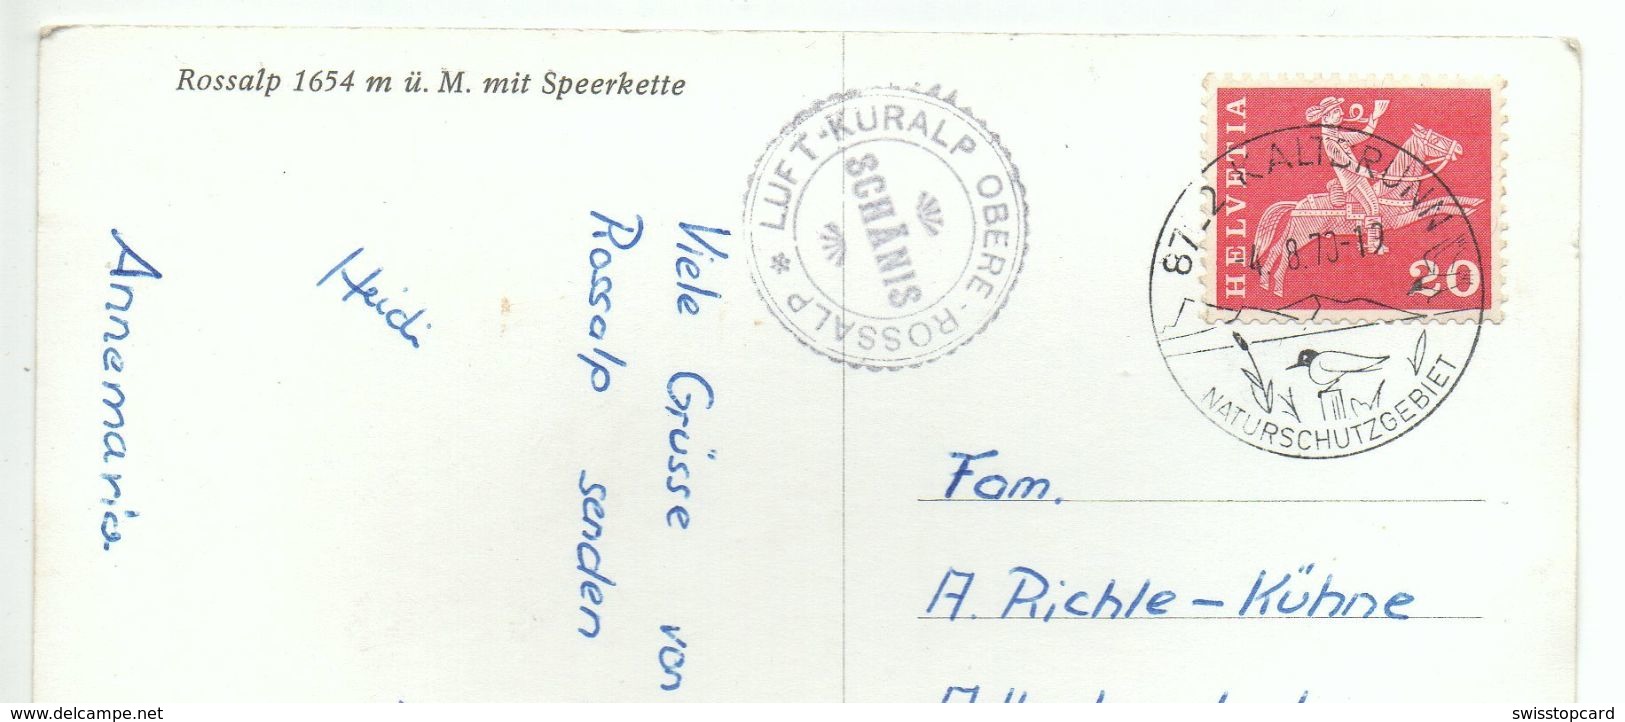 Rossalp 1654 m ü. M. mit Speerkette
* LUFT-KURALP OBERE-ROSSALP
SCHÄNIS
HELVETIA
20
87-2 KALTBRUNN
-4. 8.70-19
NATURSCHUTZGEBIET
Viele Grüsse von
Rossalp senden
Heidi
Annemarie.
Fam.
A. Richle-Kühne
www.delcampe.net
swisstopcard